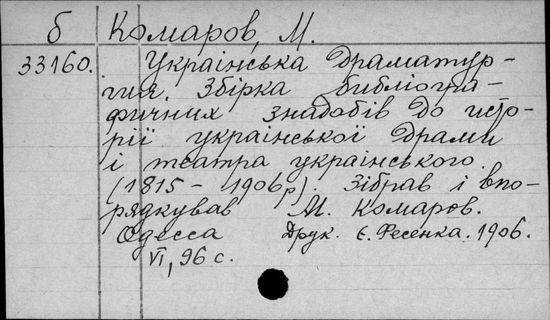 б Комаров, М.
33160. Українська драматур-
гия. Збірка библіогра-
фичних знадобів до исто-
рії української драми
і театра українського.
(1815 – 1906 р). Зібрав і впо-
рядкував М. Комаров.
Одесса Друк. Є. Фесенка. 1906.
VI, 96 с.